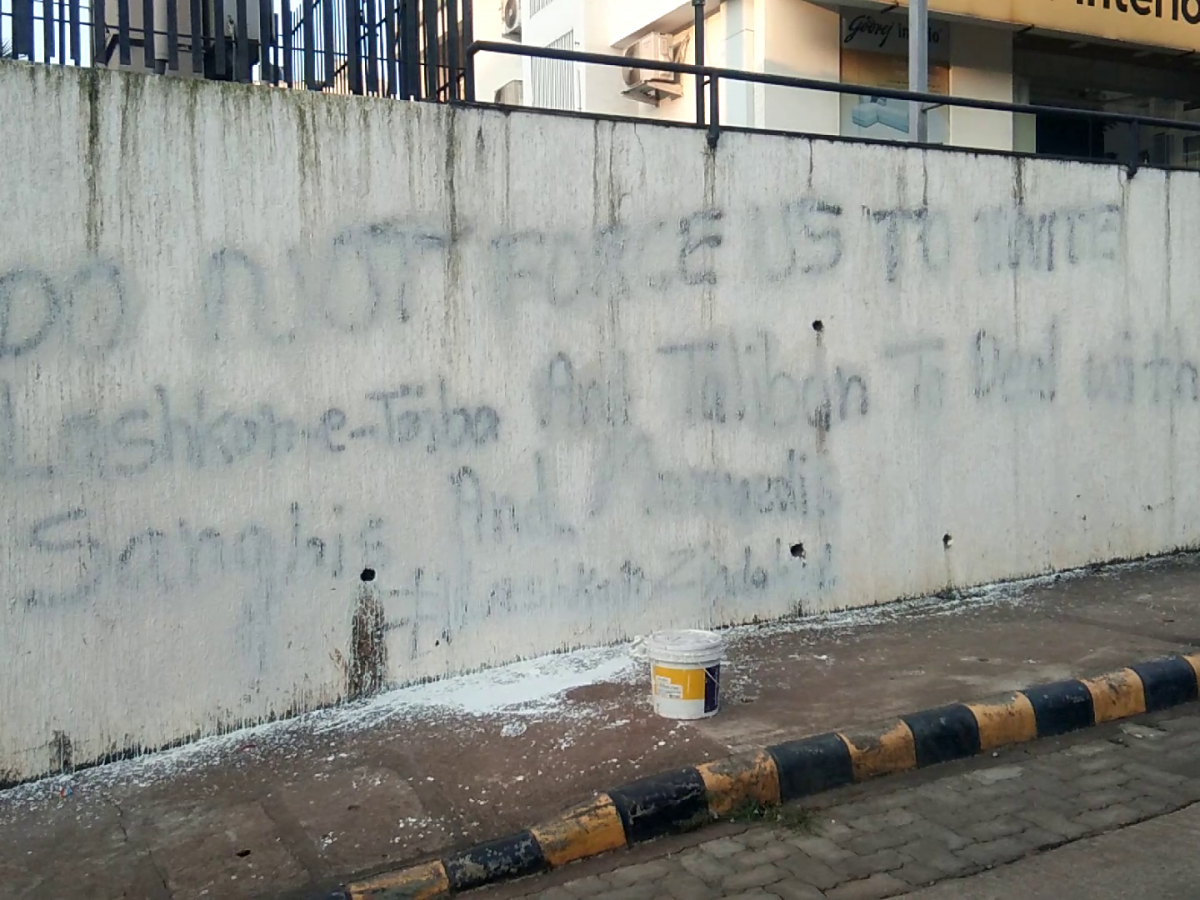 Godrej interio
interio
DO NOT FORCE US TO INVITE
Lashkar-e-Toiba And Taliban To Deal with
Sanghis And Manuvedis
#Lashkar Zindabad